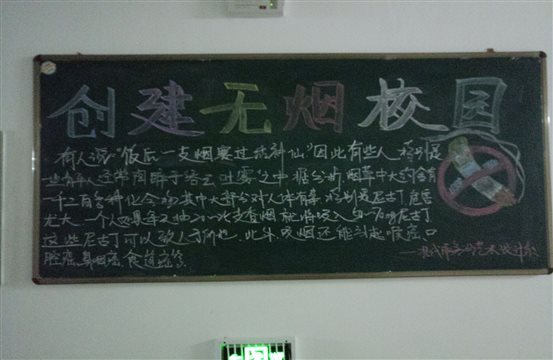 创建无烟校园
有人说"饭后一支烟赛过活神仙"因此有些人 特别是
一些青年人还常陶醉于吞云吐雾之中 据分析烟草中大约含有
一千二百多种化合物其中大部分对人体有毒 特别是尼古丁危害
尤大 一个人如果每天抽 支香烟 就将吸入 尼古丁
这些尼古丁可以致人于死地 此外 吸烟还能引起喉癌 口
腔癌 鼻咽癌 食道癌等